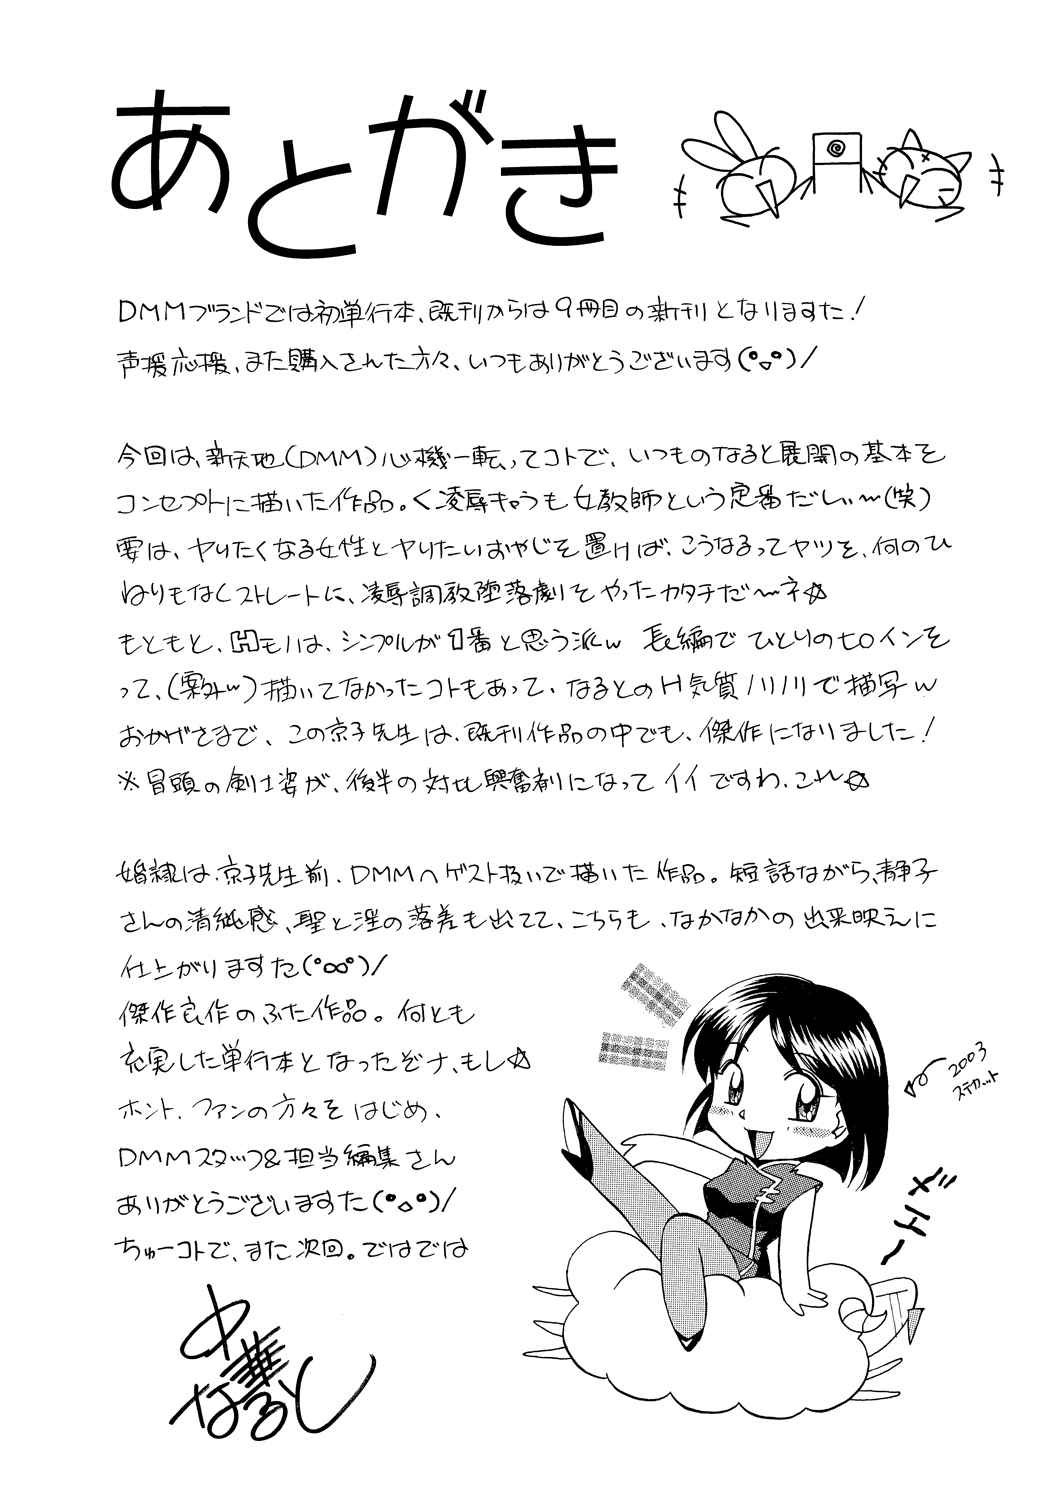 あとがき
DMMブランドでは初単行本、既刊からは9冊目の新刊となりますた!
声援応援、また購入された方々、いつもありがとうございます(°ᴗ°)/
今回は、新天地(DMM)心機一転ってコトで、いつものなると展開の基本を
コンセプトに描いた作品。く凌辱キャラも女教師という定番だしぃ〜(笑)
要は、ヤりたくなる女性とヤりたいおやじを置けば、こうなるってヤツを、何のひ
ねりもなくストレートに、凌辱調教堕落劇をやったカタチだ〜ネ☆
もともと、Hモノは、シンプルが1番と思う派w 長編でひとりのヒロインを
って、(案外w)描いてなかったコトもあって、なるとのH気質ノリノリで描写w
おかげさまで、この京子先生は、既刊作品の中でも、傑作になりました!
※冒頭の剣士姿が、後半の対比興奮剤になってイイですわ、これ☆
婚隷は、京子先生前、DMMへゲスト扱いで描いた作品。短話ながら、静子
さんの清純感、聖と淫の落差も出てて、こちらも、なかなかの出来映えに
仕上がりますた(°∞°)/
傑作良作のふた作品。何とも
充実した単行本となったぞナ、もし☆
ホント、ファンの方々をはじめ、
DMMスタッフ&担当編集さん
ありがとうございますた(°△°)/
ちゅーコトで、また次回。ではでは
2003
ステカット
メエ〜
中華なると